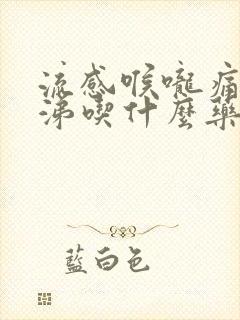 流感喉嚨痛
涕喫什麼藥
藍白色